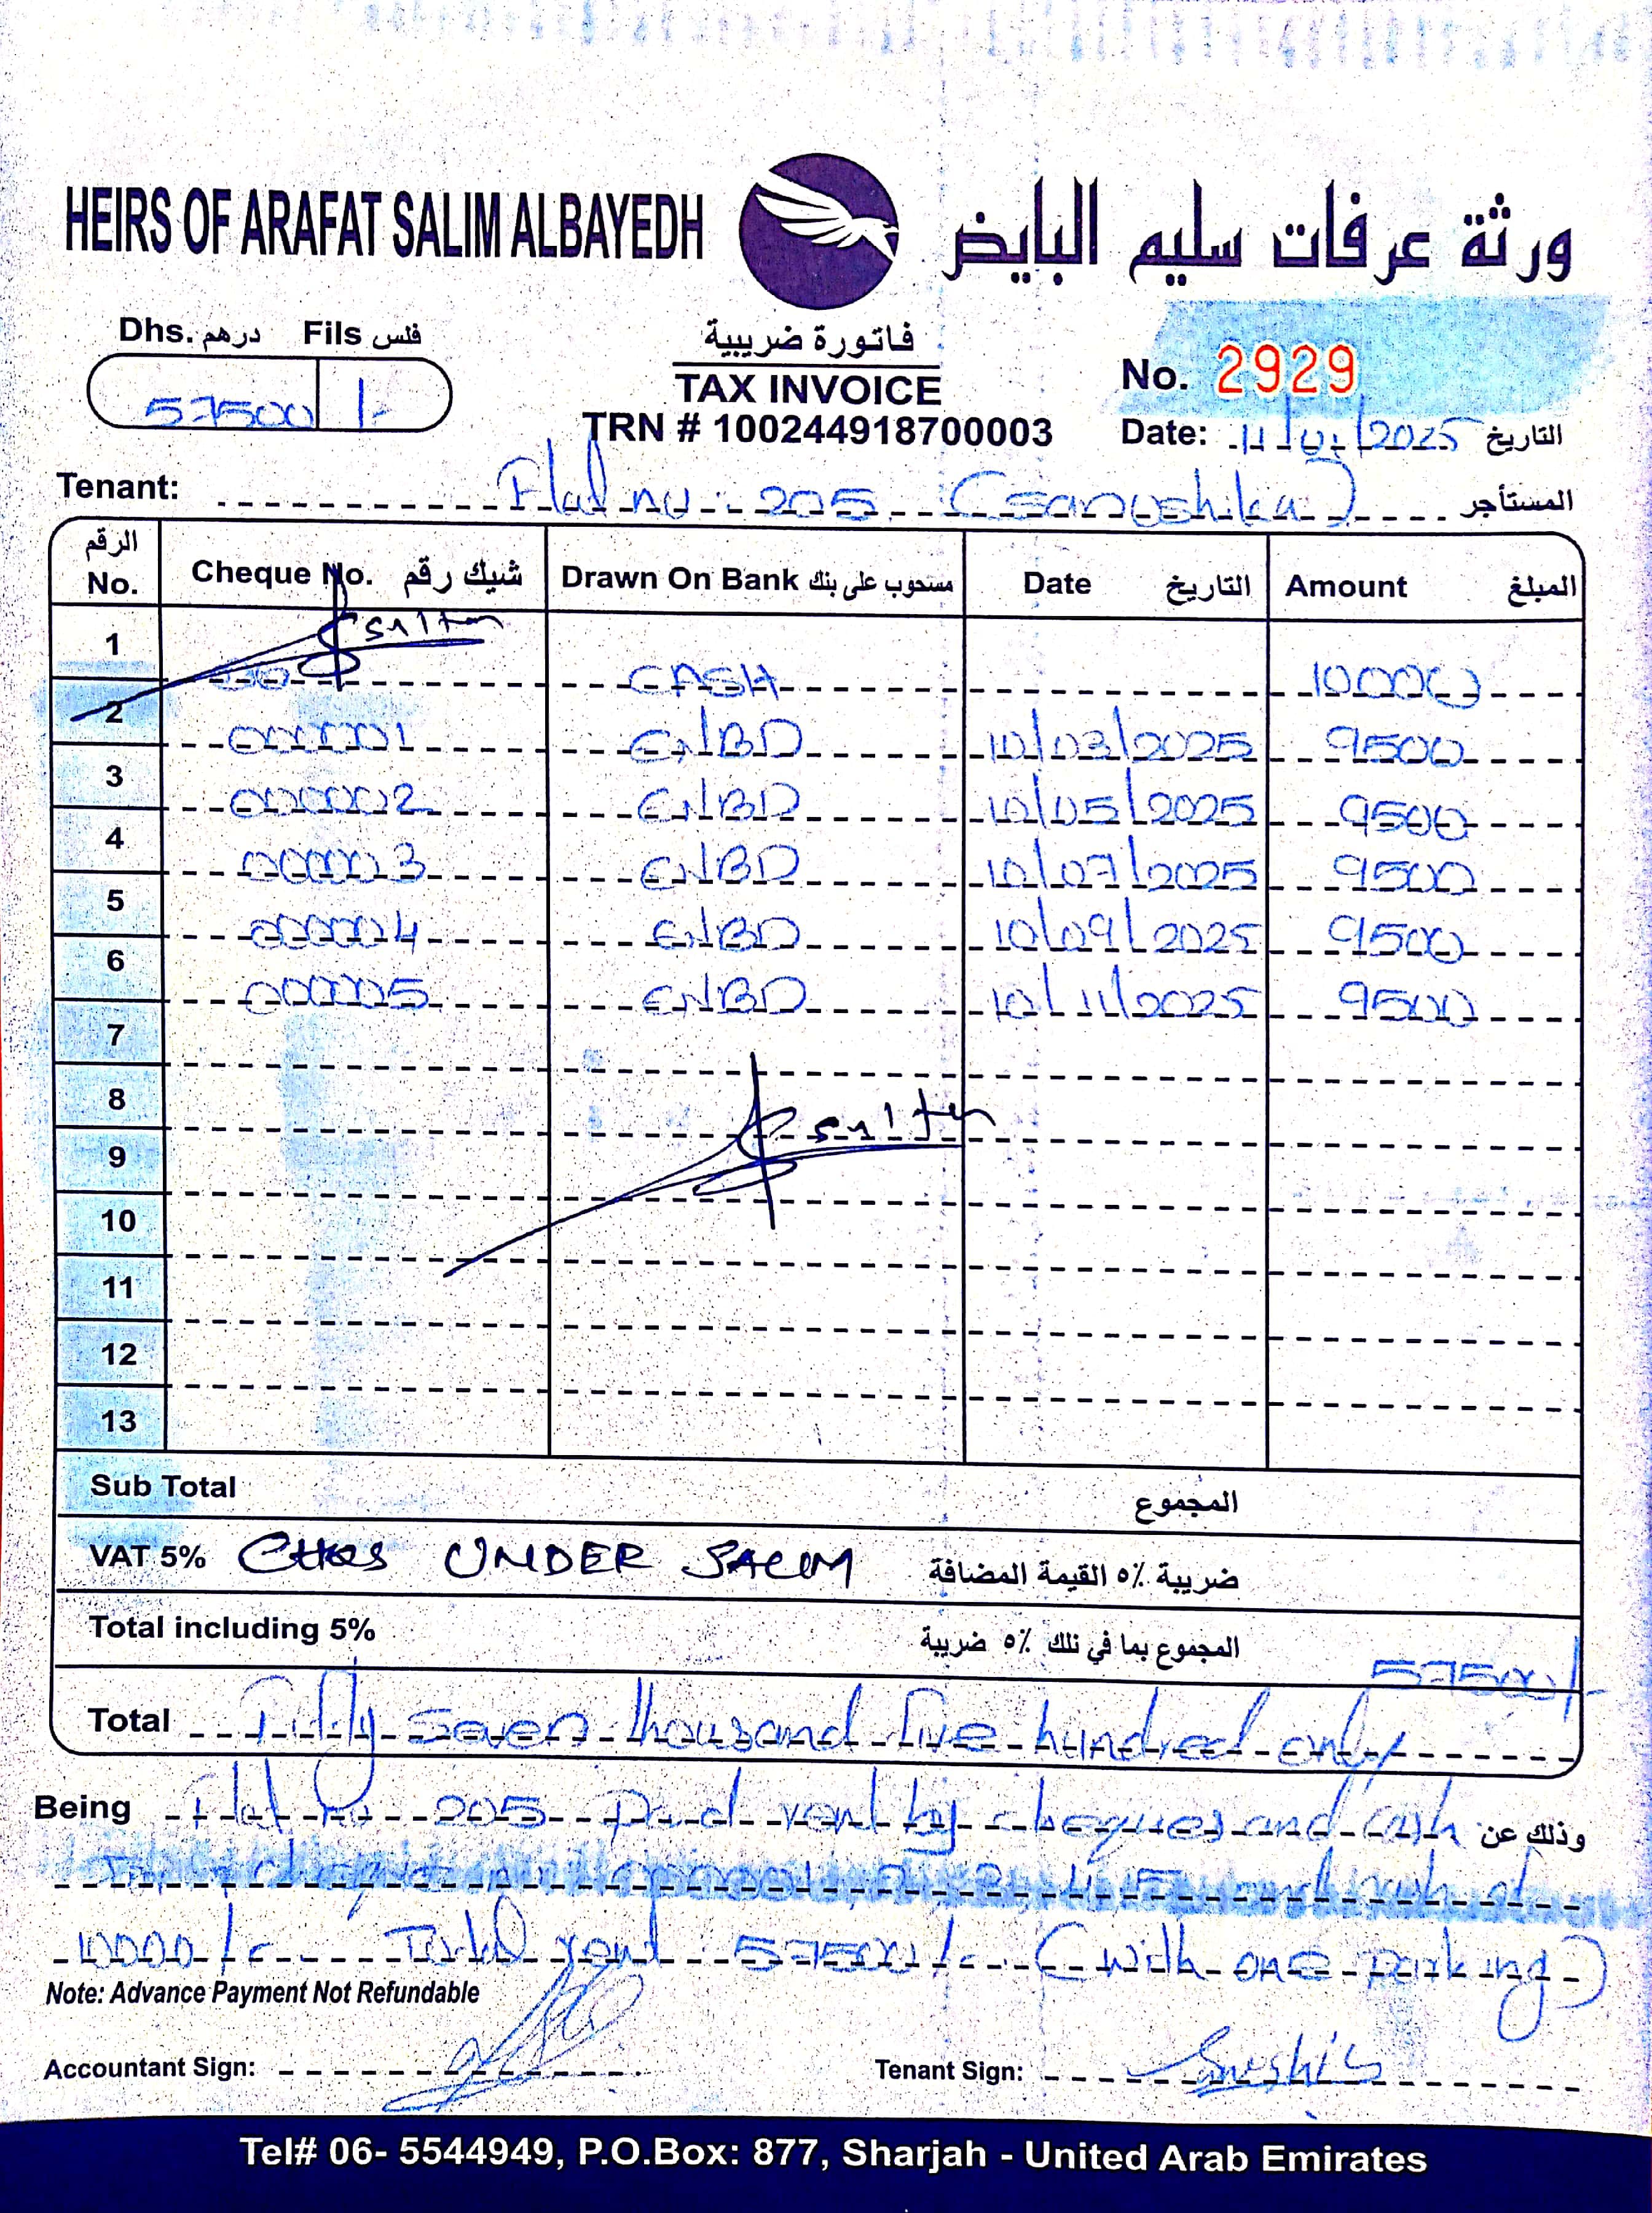 HEIRS OF ARAFAT SALIM ALBAYEDH ورثة عرفات سليم البايض
Dhs. درهم Fils فلس
57500 /-
فاتورة ضريبية
TAX INVOICE
TRN # 100244918700003
No. 2929
Date: 11/01/2025 التاريخ
Tenant: Flat no: 205 (sanushika) المستأجر
الرقم No. Cheque No. شيك رقم Drawn On Bank مسحوب على بنك Date التاريخ Amount المبلغ
1 sultan CASH 10000
2 000001 ENBD 10/03/2025 9500
3 000002 ENBD 10/05/2025 9500
4 000003 ENBD 10/07/2025 9500
5 000004 ENBD 10/09/2025 9500
6 000005 ENBD 10/11/2025 9500
7
8 sultan
9
10
11
12
13
Sub Total المجموع
VAT 5% CHQS UNDER SALIM ضريبة ٥٪ القيمة المضافة
Total including 5% المجموع بما في ذلك ٥٪ ضريبة 57500/-
Total Fifty Seven thousand five hundred only
Being Flat no 205 Paid rent by cheques and cash وذلك عن
cheque no 000001, 2, 3, 4, 5 and cash of
10000/- Total rent 57500/- (with one parking)
Note: Advance Payment Not Refundable
Accountant Sign: Tenant Sign:
Tel# 06- 5544949, P.O.Box: 877, Sharjah - United Arab Emirates